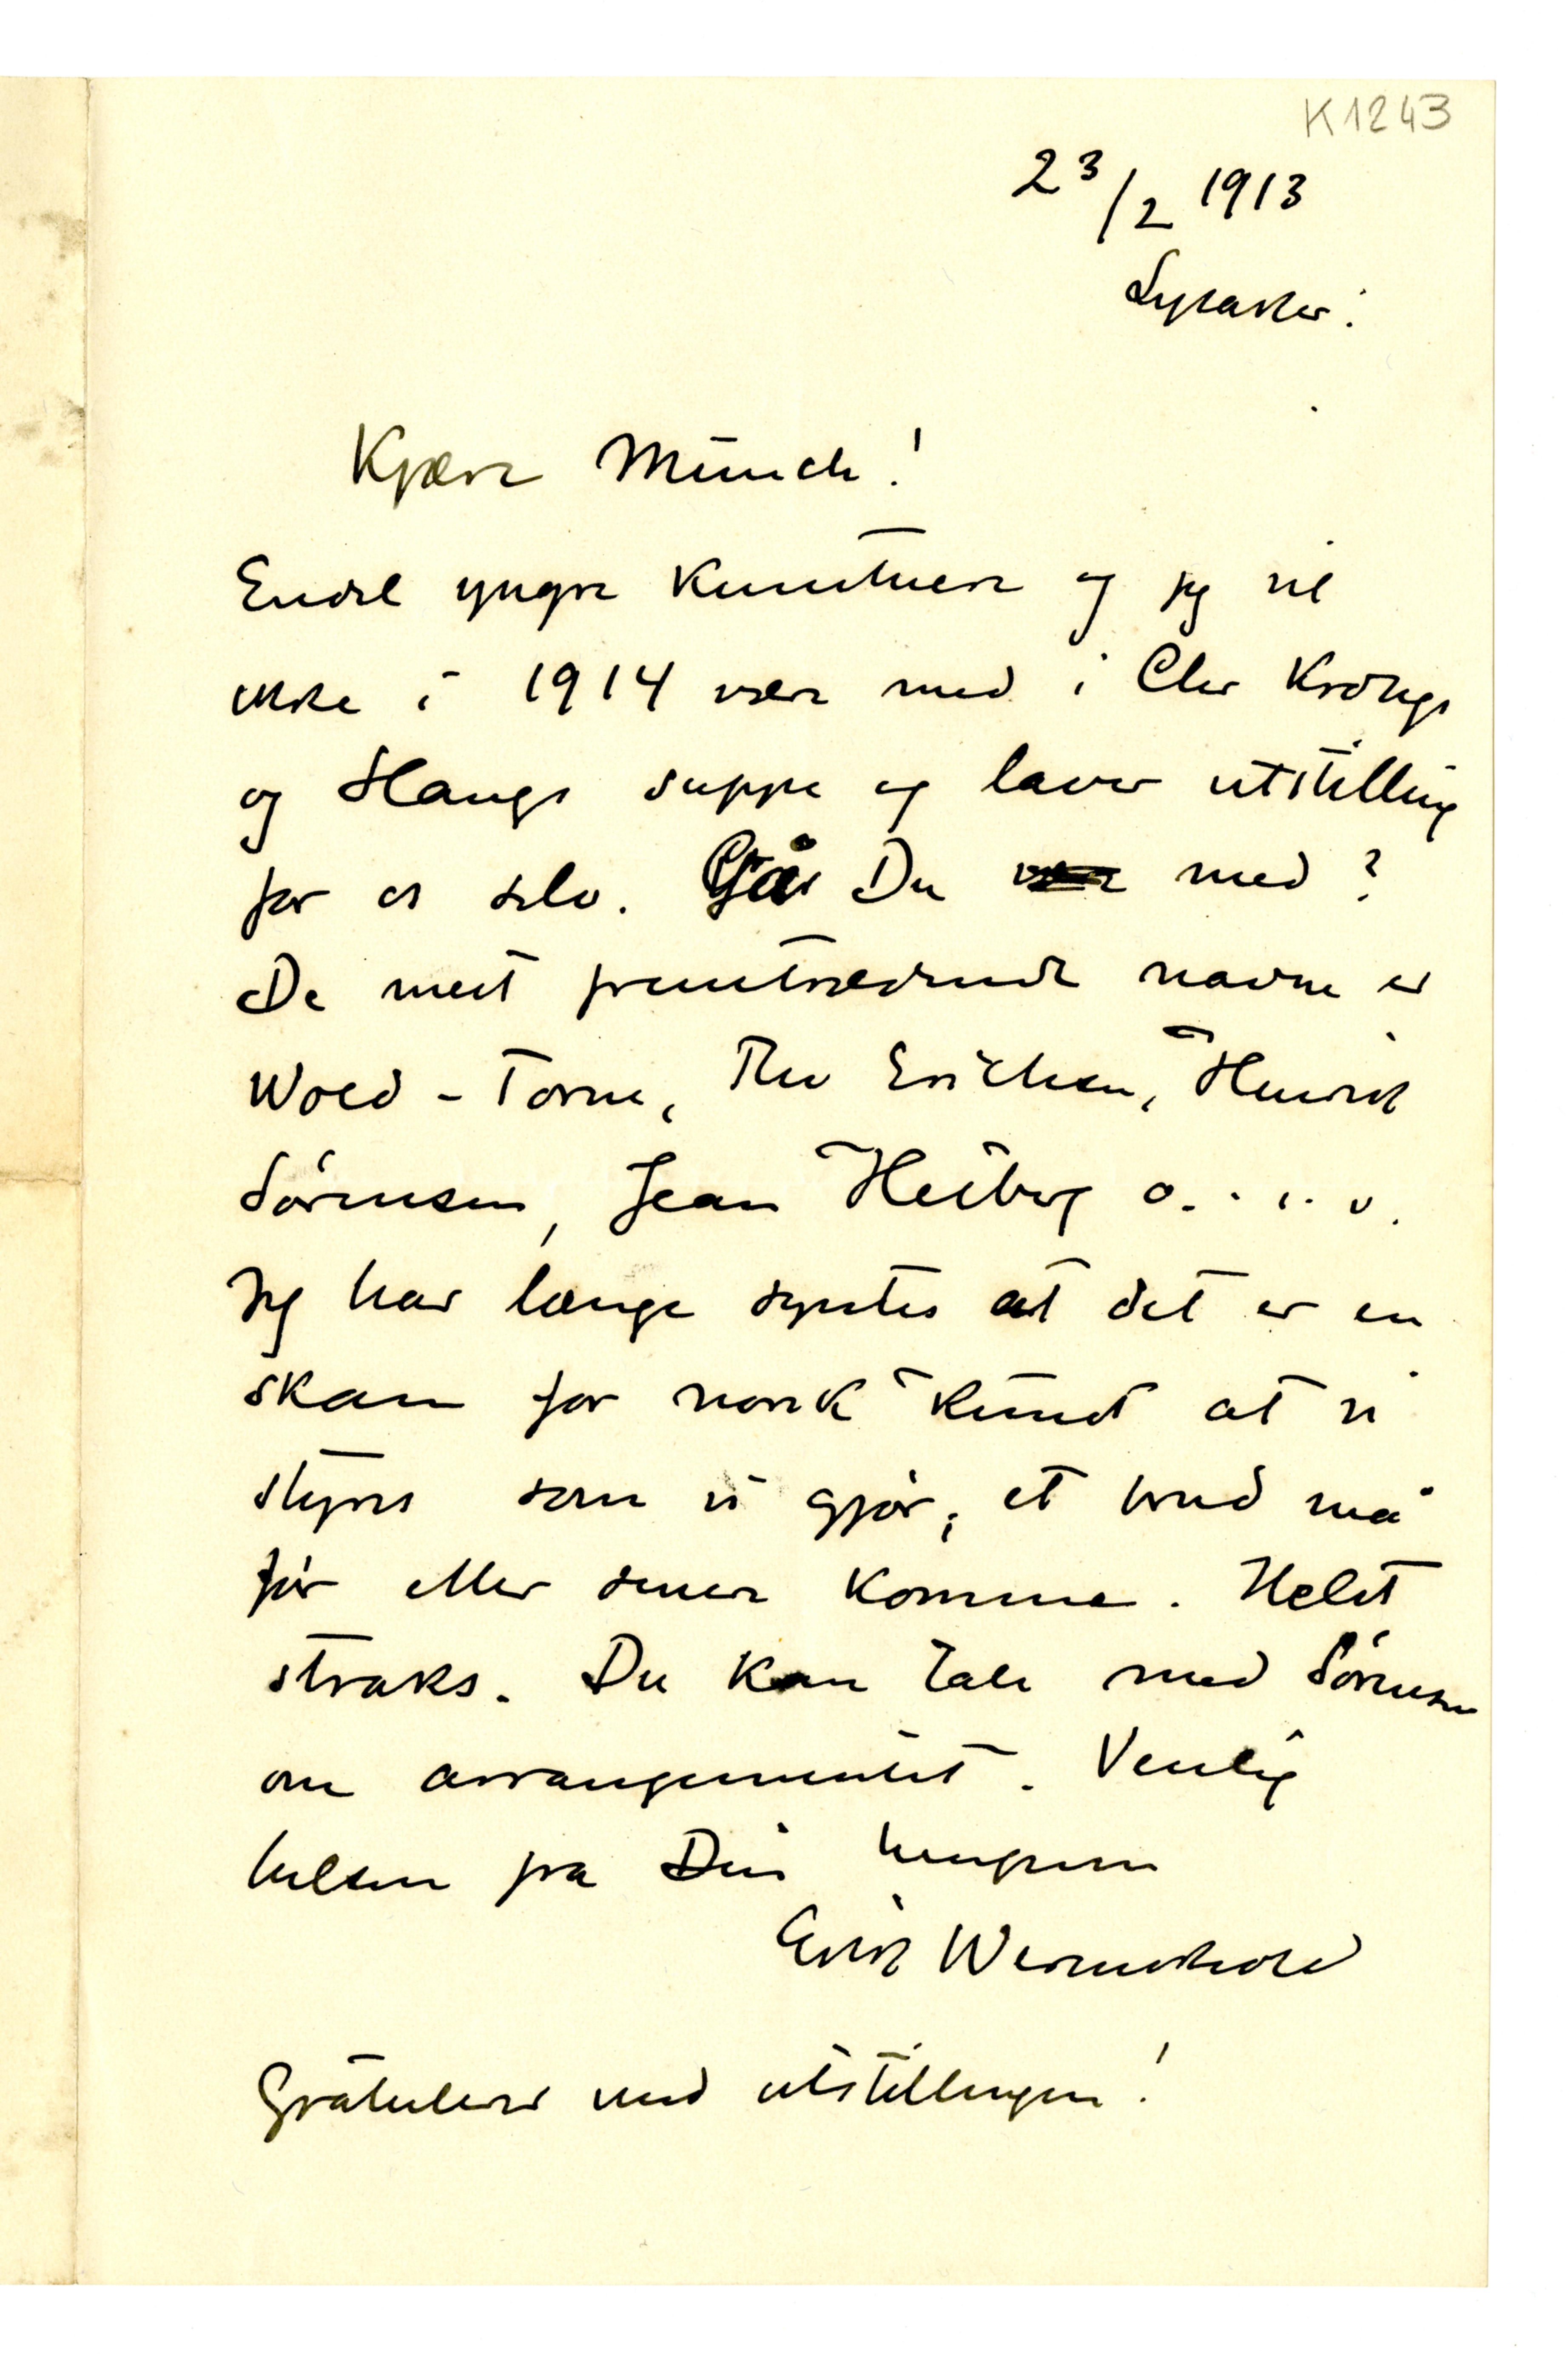 K1243
23/2 1913
Lysaker.
Kjære Munch!
Endel yngre Kunstnere og jeg vil
ikke i 1914 være med i Chr Krohgs
og Haugs suppe og laver utstilling
for os selv. Går Du være med?
De mest fremtrædende navne er
Wold-Torne, Thv Erichsen, Henrik
Sörensen, Jean Heiberg o. s. v.
Jeg har længe syntes at det er en
skam for norsk Kunst at vi
styres som vi gjör; et brud må
för eller senere Komme. Helst
straks. Du Kan tale med Sörensen
om arrangementet. Venlig
hilsen fra Din hengivne
Erik Werenskiold
Gratulerer med utstillingen!